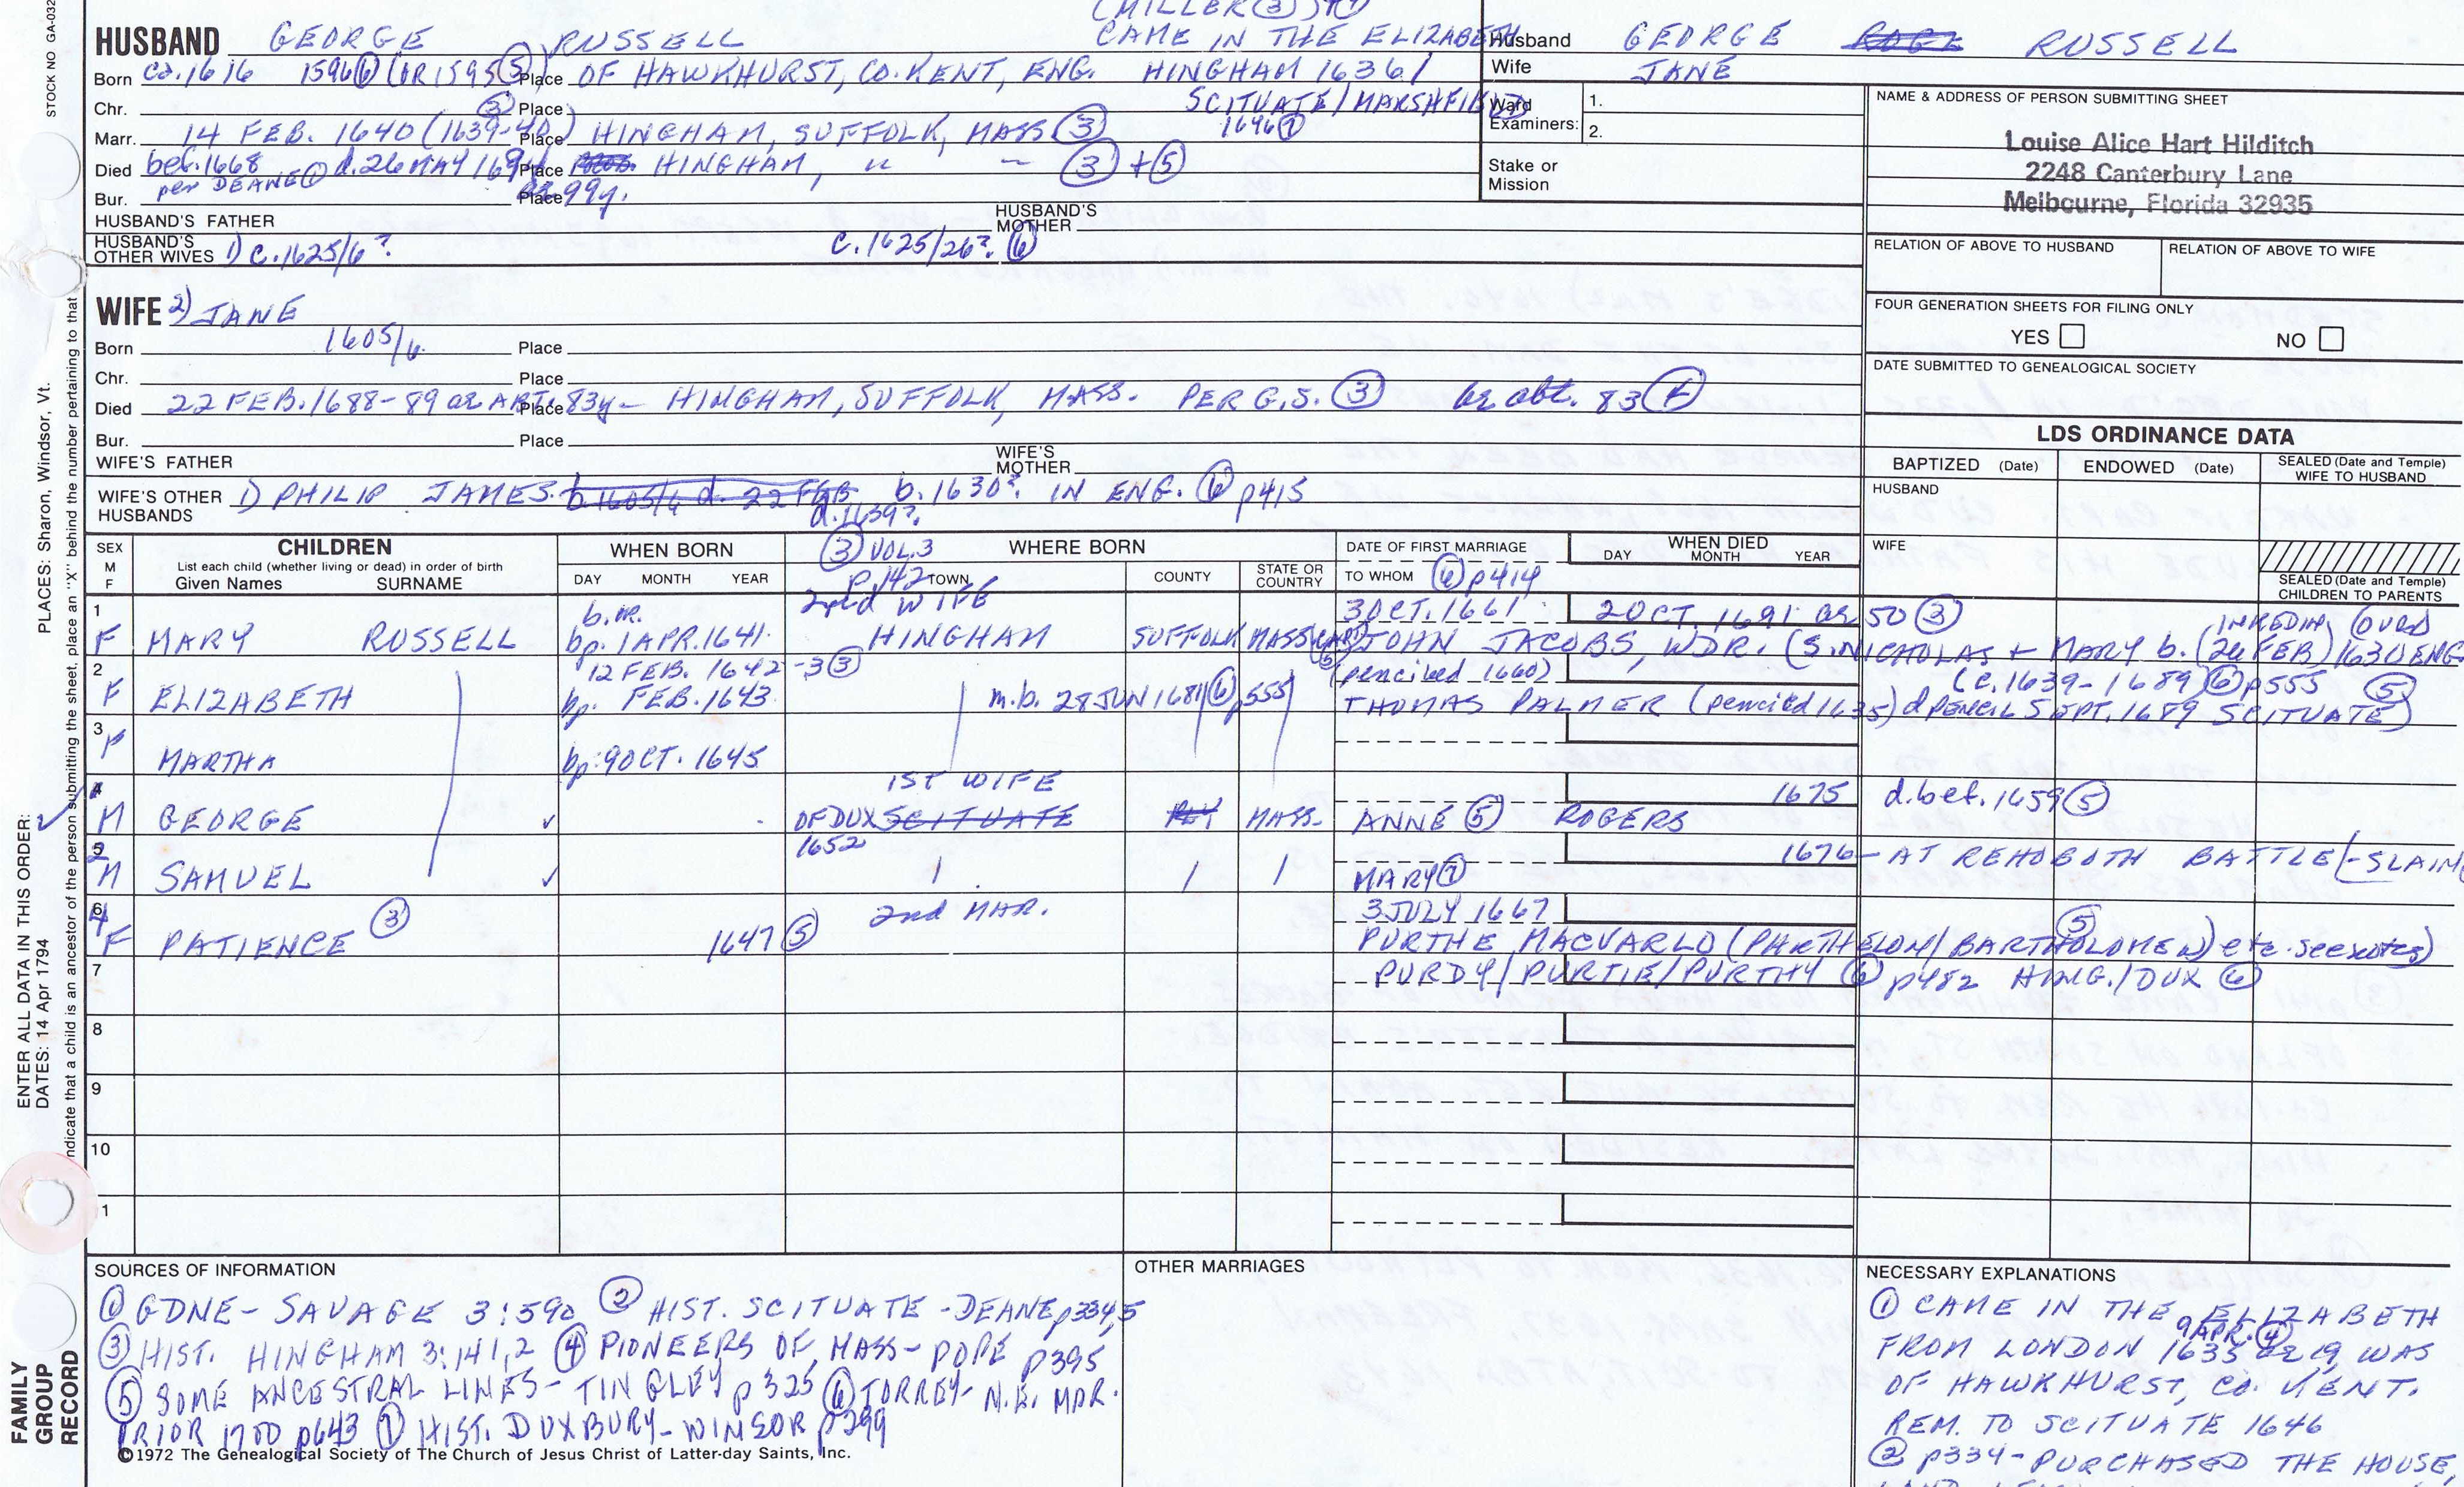 (MILLER ③)
HUSBAND GEORGE RUSSELL CAME IN THE ELIZABETH
Born ca. 1616 1596⑥ (OR 1595⑤) Place OF HAWKHURST, CO. KENT, ENG. HINGHAM 1636/
Chr. ③ Place SCITUATE/MARSHFIELD
1646⑦
Marr. 14 FEB. 1640 (1639-40) Place HINGHAM, SUFFOLK, MASS ③
Died bef. 1668 d. 26 MAY 1694 Place HINGHAM, " ~ ③ + ⑤
per DEANE
Bur. Place 99y.
HUSBAND'S FATHER
HUSBAND'S MOTHER
HUSBAND'S OTHER WIVES 1) C. 1625/6? C. 1625/26? ⑥
Husband GEORGE RUSSELL
Wife JANE
Ward Examiners: 1.
2.
Stake or Mission
NAME & ADDRESS OF PERSON SUBMITTING SHEET
Louise Alice Hart Hilditch
2248 Canterbury Lane
Melbourne, Florida 32935
RELATION OF ABOVE TO HUSBAND RELATION OF ABOVE TO WIFE
FOUR GENERATION SHEETS FOR FILING ONLY
YES NO
DATE SUBMITTED TO GENEALOGICAL SOCIETY
WIFE 2) JANE
Born 1605/6 Place
Chr. Place
Died 22 FEB. 1688-89 ae ABT. 83y Place - HINGHAM, SUFFOLK, MASS. PER G.S. ③ ae abt. 83
Bur. Place
WIFE'S FATHER
WIFE'S MOTHER
WIFE'S OTHER HUSBANDS 1) PHILIP JAMES b 1605/6 d. 22 FEB b. 1630? IN ENG. ⑥ p415
d. 1639?
LDS ORDINANCE DATA
BAPTIZED (Date) ENDOWED (Date) SEALED (Date and Temple) WIFE TO HUSBAND
HUSBAND
WIFE
SEALED (Date and Temple) CHILDREN TO PARENTS
SEX M F
CHILDREN
List each child (whether living or dead) in order of birth
Given Names SURNAME
WHEN BORN
DAY MONTH YEAR
③ VOL. 3 WHERE BORN
p. 142 TOWN COUNTY STATE OR COUNTRY
DATE OF FIRST MARRIAGE
TO WHOM ⑥ p414
WHEN DIED
DAY MONTH YEAR
1 2nd WIFE 3 OCT. 1661 2 OCT. 1691 ae 50 ③
F MARY RUSSELL bp. 1 APR. 1641 HINGHAM SUFFOLK MASS JOHN JACOBS, WDR. (S. NICHOLAS + MARY b. (26 FEB) 1630 ENG
2 12 FEB. 1642-3 ③ (pencilled 1660) (C. 1639-1689) ⑥ p555 ⑤
F ELIZABETH bp. FEB. 1643 m.b. 28 JUN 1681 ⑥ p555 THOMAS PALMER (pencild 1635) d pencil SEPT. 1689 SCITUATE)
3
MARTHA bp. 9 OCT. 1645
4 1ST WIFE 1675 d. bef. 1659 ⑤
M GEORGE ✓ OF DUX SCITUATE MASS. ANNE ⑤ ROGERS
5 1652 1676 - AT REHOBOTH BATTLE (-SLAIN
M SAMUEL ✓ MARY ⑦
6 2nd MAR. 3 JULY 1667 ⑤
F PATIENCE ③ 1647 ⑤ PURTHE MACVARLO (PARTHELON/BARTHOLOMEW) etc. see notes)
7 PURDY/PURTIE/PURTHY ⑥ p482 HING./DUX ⑥
8
9
10
1
SOURCES OF INFORMATION
① GDNE - SAVAGE 3:590 ② HIST. SCITUATE - DEANE p334,5
③ HIST. HINGHAM 3:141,2 ④ PIONEERS OF MASS - POPE p395
⑤ SOME ANCESTRAL LINES - TINGLEY p325 ⑥ TORREY - N.E. MAR.
PRIOR 1700 p643 ⑦ HIST. DUXBURY - WINSOR p299
©1972 The Genealogical Society of The Church of Jesus Christ of Latter-day Saints, Inc.
OTHER MARRIAGES
NECESSARY EXPLANATIONS
① CAME IN THE ELIZABETH
9 APR. ④
FROM LONDON 1635 ae 19 WAS
OF HAWKHURST, CO. KENT.
REM. TO SCITUATE 1646
② p334 - PURCHASED THE HOUSE,
STOCK NO GA-032
PLACES: Sharon, Windsor, Vt.
ndicate that a child is an ancestor of the person submitting the sheet, place an "X" behind the number pertaining to that
ENTER ALL DATA IN THIS ORDER:
DATES: 14 Apr 1794
FAMILY GROUP RECORD